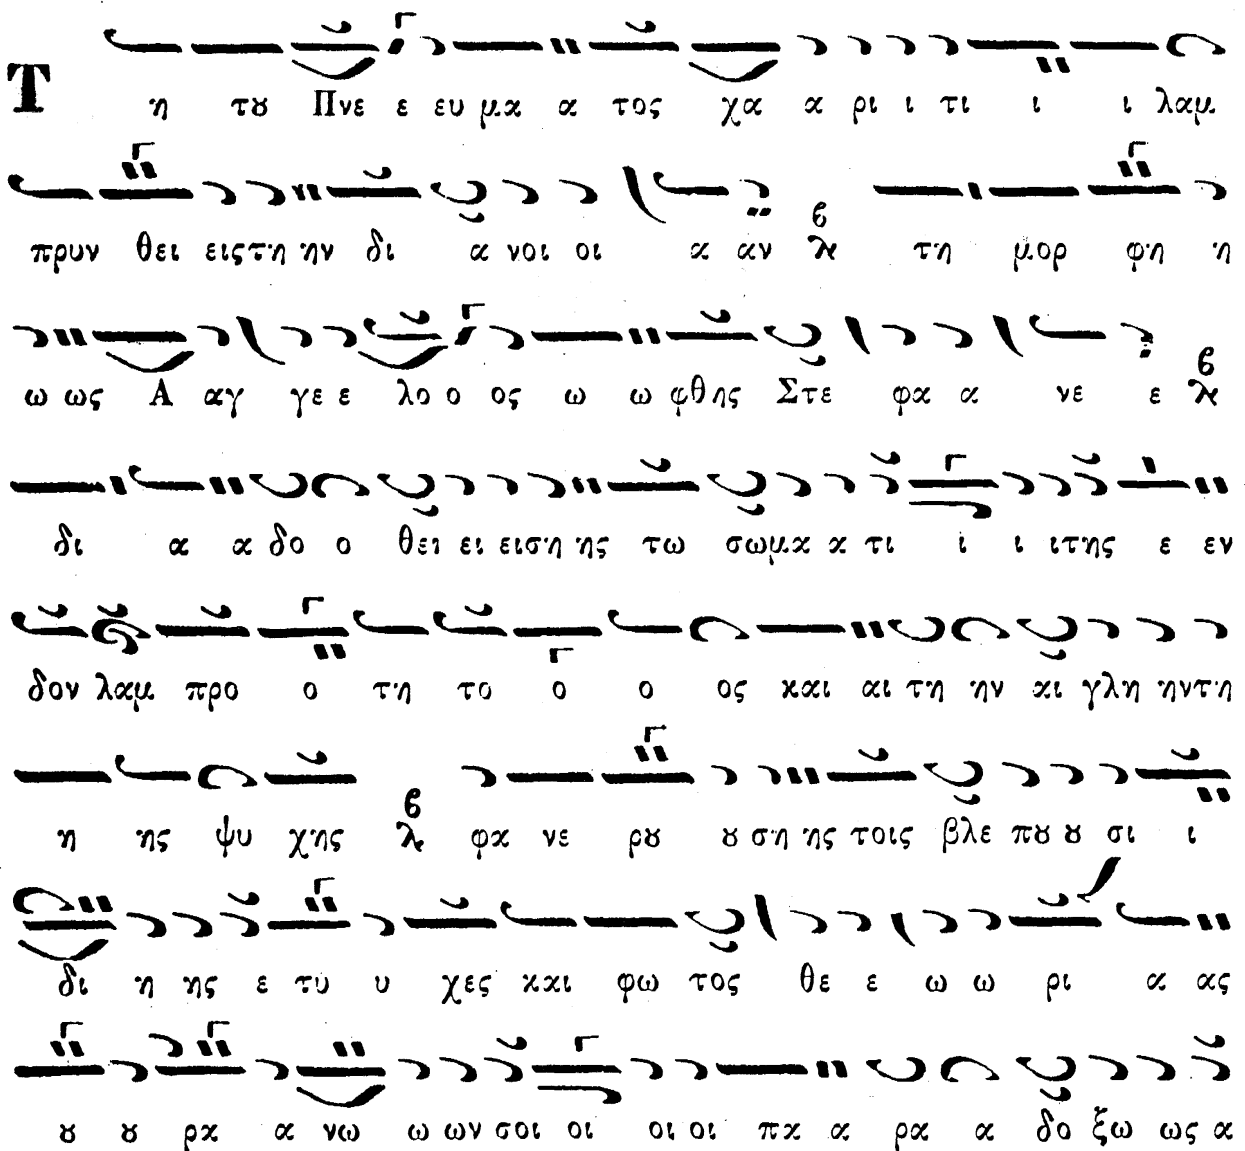 Τ η τȣ Πνε ε ευ μα α τος χα α ρι ι τι ι ι λαμ
πρυν θει ειςτη ην δι α νοι οι α αν τη μορ φη η
ω ως Α αγ γε ε λο ο ος ω ω φθης Στε φα α νε ε
δι α α δο ο θει ει ειση ης τω σωμα α τι ι ι ιτης ε εν
δον λαμ προ ο τη το ο ο ος και αι τη ην αι γλη ηντη
η ης ψυ χης φα νε ρȣ ȣ ση ης τοις βλε πȣ ȣ σι ι
δι η ης ε τυ υ χες και φω τος θε ε ω ω ρι α ας
ȣ ȣ ρα α νω ω ων σοι οι οι οι πα α ρα α δο ξω ως α